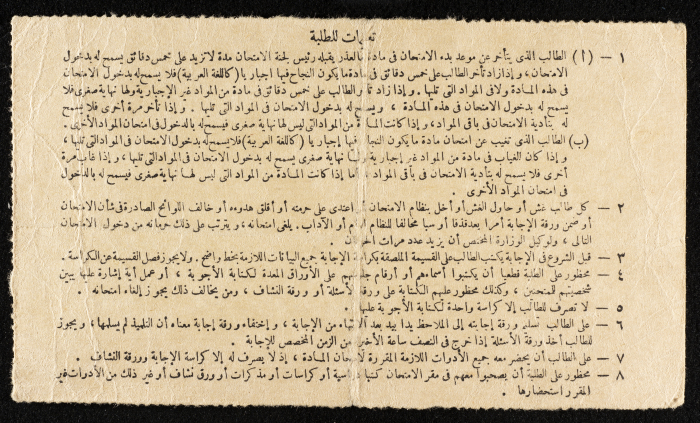 تعليمات للطلبة
١ — (ا) الطالب الذى يتأخر عن موعد بدء الامتحان فى مادة بالعذر يقبله رئيس لجنة الامتحان مدة لا تزيد على خمس دقائق يسمح له بدخول
الامتحان، وإذا زاد تأخر الطالب على خمس دقائق فى مادة ما يكون النجاح فيها اجباريا (كاللغة العربية) فلا يسمح له بدخول الامتحان
فى هذه المادة ولا فى المواد التى تليها. وإذا زاد تأخر الطالب على خمس دقائق فى مادة من المواد غير الإجبارية ولها نهاية صغرى فلا
يسمح له بدخول الامتحان فى هذه المادة، ويسمح له بدخول الامتحان فى المواد التى تليها. وإذا تأخر مرة أخرى فلا يسمح
له بتأدية الامتحان فى باقى المواد، وإذا كانت المادة من المواد التى ليس لها نهاية صغرى فيسمح له بالدخول فى امتحان المواد الأخرى.
(ب) الطالب الذى تغيب عن امتحان مادة ما يكون النجاح فيها إجباريا (كاللغة العربية) فلا يسمح له بدخول الامتحان فى المواد التى تليها،
وإذا كان الغياب فى مادة من المواد غير إجبارية ولها نهاية صغرى يسمح له بدخول الامتحان فى المواد التى تليها، وإذا غاب مرة
أخرى فلا يسمح له بتأدية الامتحان فى باقى المواد، أما إذا كانت المادة من المواد التى ليس لها نهاية صغرى فيسمح له بالدخول
فى امتحان المواد الأخرى.
٢ — كل طالب غش أو حاول الغش أو أخل بنظام الامتحان أو اعتدى على حرمته أو أقلق هدوءه أو خالف اللوائح الصادرة فى شأن الامتحان
أو ضمن ورقة الإجابة أمرا يعد قذفا أو سبا مخالفا للنظام العام أو الآداب. يلغى امتحانه، ويترتب على ذلك حرمانه من دخول الامتحان
التالى، ولوكيل الوزارة المختص أن يزيد عدد مرات الحرمان.
٣ — قبل الشروع فى الإجابة يكتب الطالب على القسيمة الملصقة بكراسة الإجابة جميع البيانات اللازمة بخط واضح. ولا يجوز فصل القسيمة عن الكراسة.
٤ — محظور على الطلبة قطعيا أن يكتبوا أسماءهم أو أرقام جلوسهم على الأوراق المعدة لكتابة الأجوبة، أو عمل أية إشارة عليها يبين
شخصيتهم للمتحنين، وكذلك محظور عليهم الكتابة على ورقة الأسئلة أو ورقة النشاف، ومن يخالف ذلك يجوز إلغاء امتحانه.
٥ — لا تصرف للطالب إلا كراسة واحدة لكتابة الأجوبة عليها.
٦ — على الطالب تسليم ورقة إجابته إلى الملاحظ يدا بيد بعد الانتهاء من الإجابة، وإختفاء ورقة إجابة معناه أن التلميذ لم يسلمها، ويجوز
للطالب أخذ ورقة الأسئلة إذا خرج فى النصف ساعة الأخير من الزمن المخصص للإجابة.
٧ — على الطالب أن يحضر معه جميع الأدوات اللازمة المقررة لامتحان المادة، إذ لا يصرف له إلا كراسة الإجابة وورقة النشاف.
٨ — محظور على الطلبة أن يصحبوا معهم فى مقر الامتحان كتبا دراسية أو كراسات أو مذكرات أو ورق نشاف أو غير ذلك من الأدوات غير
المقرر استحضارها.